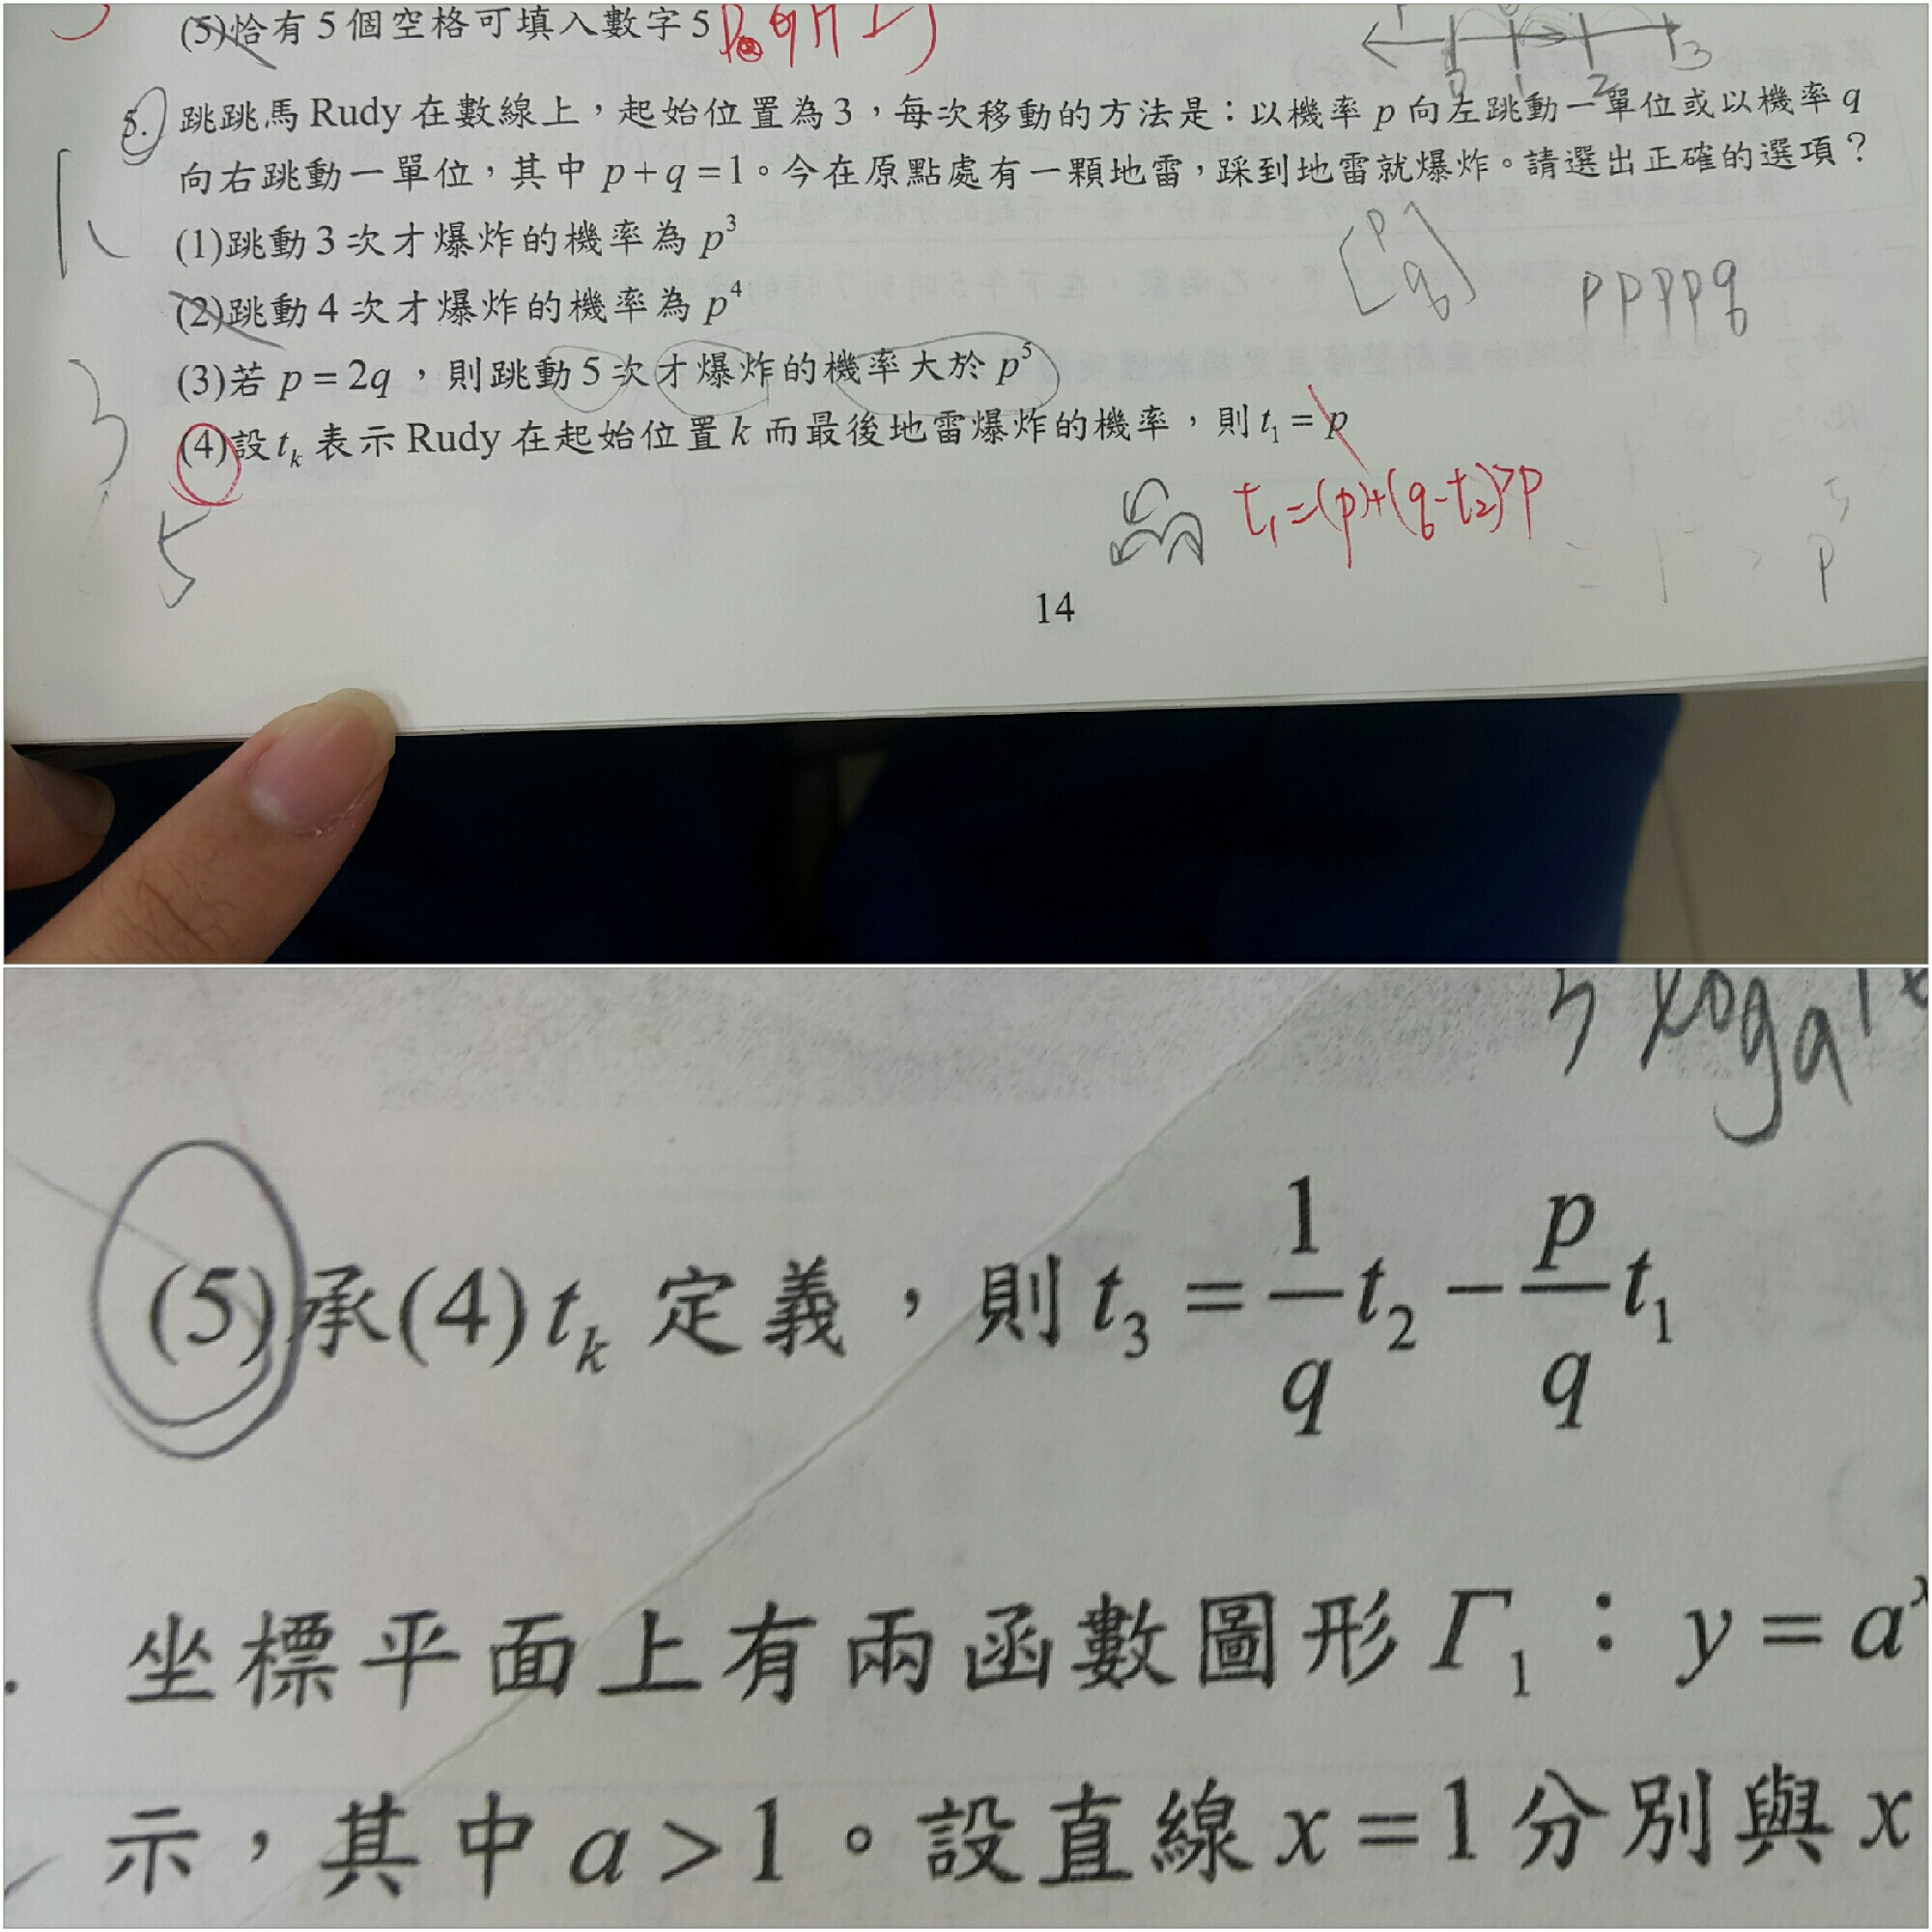 (5)恰有5個空格可填入數字5
0 1 2 3
5. 跳跳馬 Rudy 在數線上，起始位置為3，每次移動的方法是：以機率 p 向左跳動一單位或以機率 q
向右跳動一單位，其中 p+q=1。今在原點處有一顆地雷，踩到地雷就爆炸。請選出正確的選項？
(1)跳動3次才爆炸的機率為 p³
(2)跳動4次才爆炸的機率為 p⁴
[p q]
ppppq
(3)若 p=2q，則跳動5次才爆炸的機率大於 p⁵
(4)設 tₖ 表示 Rudy 在起始位置 k 而最後地雷爆炸的機率，則 t₁=p
1
3
5
t₁=(p)+(q-t₂)>p
14
(5)承(4) tₖ 定義，則 t₃ = 1/q t₂ − p/q t₁
坐標平面上有兩函數圖形 Γ₁：y=aˣ
示，其中 a>1。設直線 x=1 分別與 x